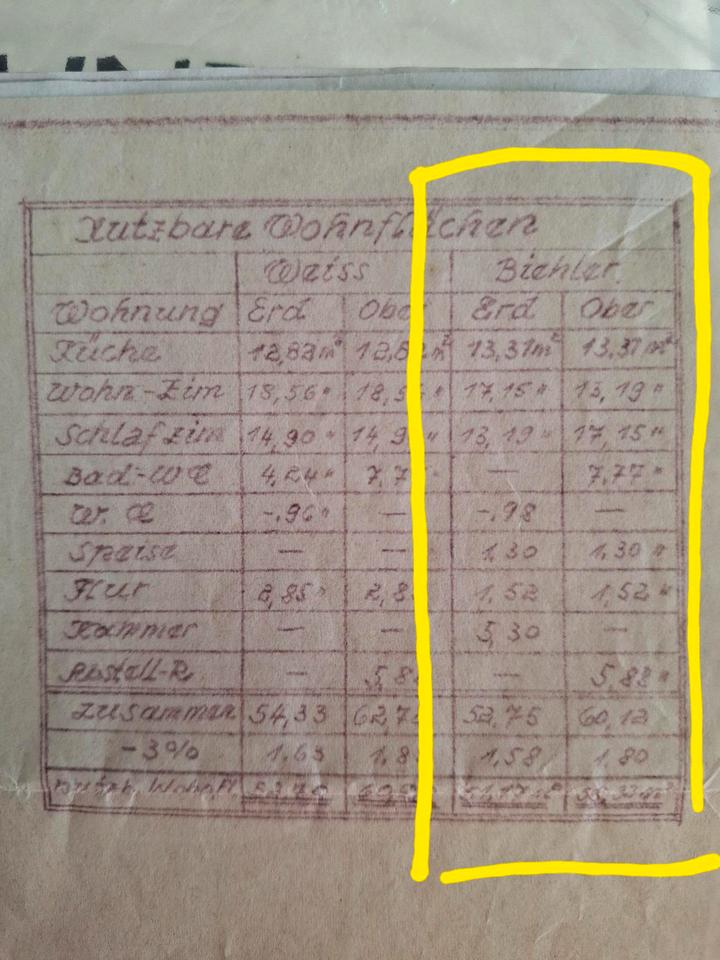 Nutzbare Wohnflächen
Weiss Biehler.
Wohnung Erd Ober Erd Ober
Küche 12,82 m² 12,82 m² 13,31 m² 13,31 m²
Wohn-Zim 18,56 " 18,56 " 17,15 " 13,19 "
Schlafzim 14,90 " 14,9 " 13,19 " 17,15 "
Bad-WC 4,24 " 7,7 " — 7,77 "
W.C -.96 " — -.98 —
Speise — — 1,30 1,30 "
Flur 2,85 " 2,8 1,52 1,52 "
Kammer — — 5,30 —
Abstell-R — 5,8 — 5,88 "
Zusammen 54,33 62,7 52,75 60,12
-3% 1,63 1,8 1,58 1,80
Wohnfl.